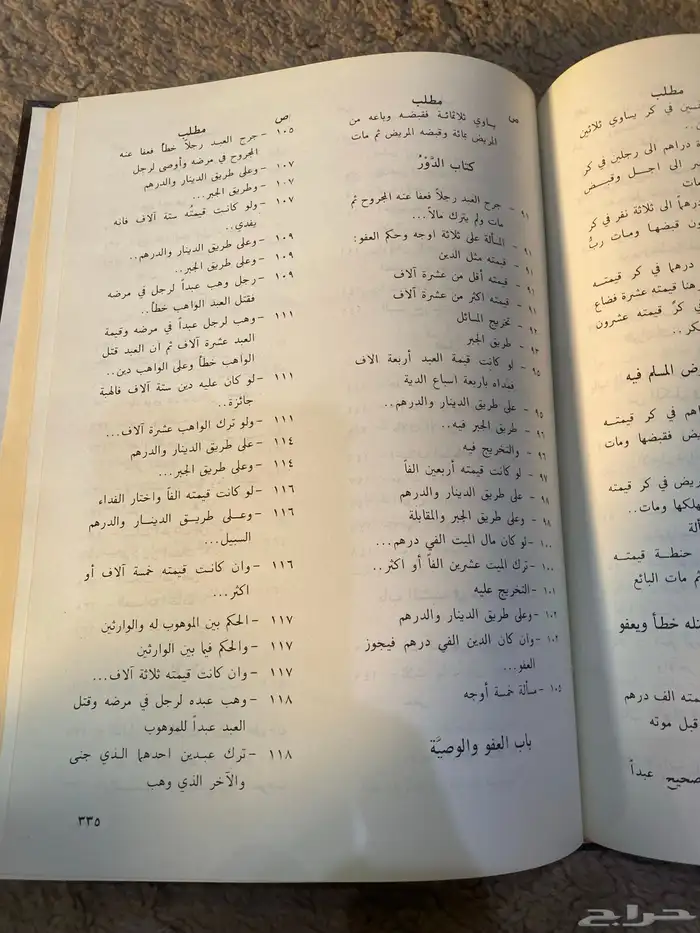 ص مطلب
يساوي ثلاثمائة فقبضه وباعه من
المريض بمائة وقبضه المريض ثم مات
كتاب الدَّوْرْ
٩١ - جرح العبد رجلاً فعفا عنه المجروح ثم
مات ولم يترك مالاً...
٩١ - المسألة على ثلاثة اوجه وحكم العفو:
٩١ - قيمته مثل الدين
٩١ - قيمته أقل من عشرة آلاف
٩١ - قيمته اكثر من عشرة آلاف
٩٢ - تخريج المسائل
٩٣ - طريق الجبر
٩٥ - لو كانت قيمة العبد أربعة الاف
ففداه باربعة اسباع الدية
٩٥ - على طريق الدينار والدرهم..
٩٦ - طريق الجبر فيه..
٩٦ - والتخريج فيه
٩٧ - لو كانت قيمته أربعين الفاً
٩٨ - على طريق الدينار والدرهم
٩٨ - وعلى طريق الجبر والمقابلة
١٠٠ -لو كان مال الميت الفي درهم...
١٠٠ -ترك الميت عشرين الفاً أو اكثر..
١٠١ -التخريج عليه
١٠٢ -وعلى طريق الدينار والدرهم
١٠٢ -وان كان الدين الفي درهم فيجوز
العفو...
١٠٤ -مسألة خمسة أوجه
باب العفو والوصيَّة
ص مطلب
١٠٥ -جرح العبد رجلاً خطأ فعفا عنه
المجروح في مرضه وأوصى لرجل
١٠٧ -وعلى طريق الدينار والدرهم
١٠٧ -وطريق الجبر...
١٠٧ -ولو كانت قيمتُه ستة آلاف فانه
يفدي..
١٠٩ -وعلى طريق الدينار والدرهم..
١٠٩ -وعلى طريق الجبر..
١٠٩ -رجل وهب عبداً لرجل في مرضه
فقتل العبد الواهب خطأ..
١١١ -وهب لرجل عبداً في مرضه وقيمة
العبد عشرة آلاف ثم ان العبد قتل
الواهب خطأ وعلى الواهب دين..
١١١ -لو كان عليه دين ستة آلاف فالهبة
جائزة..
١١١ -ولو ترك الواهب عشرة آلاف...
١١٤ -على طريق الدينار والدرهم
١١٤ -وعلى طريق الجبر...
١١٦ -لو كانت قيمته الفاً واختار الفداء
١١٦ -وعلى طريق الدينار والدرهم
السبيل...
١١٦ -وان كانت قيمته خمسة آلاف أو
اكثر...
١١٧ -الحكم بين الموهوب له والوارثين
١١٧ -والحكم فيما بين الوارثين
١١٧ -وان كانت قيمته ثلاثة آلاف...
١١٨ -وهب عبده لرجل في مرضه وقتل
العبد عبداً للموهوب
١١٨ -ترك عبدين احدهما الذي جنى
والآخر الذي وهب
٣٣٥
مطلب
في كر يساوي ثلاثين
دراهم الى رجلين في كر
الى اجل وقبض
مات
الى ثلاثة نفر في كر
قبضها ومات ربُّ
درهما في كر قيمتـه
قيمته عشرة فضاع
كرّ قيمته عشرون
المسلم فيه
في كر قيمتـه
فقبضها ومات
في كر قيمته
ومات..
حنطة قيمتـه
ثم مات البائع
خطأ ويعفو
الف درهم
قبل موته
صحيح عبداً
حراج